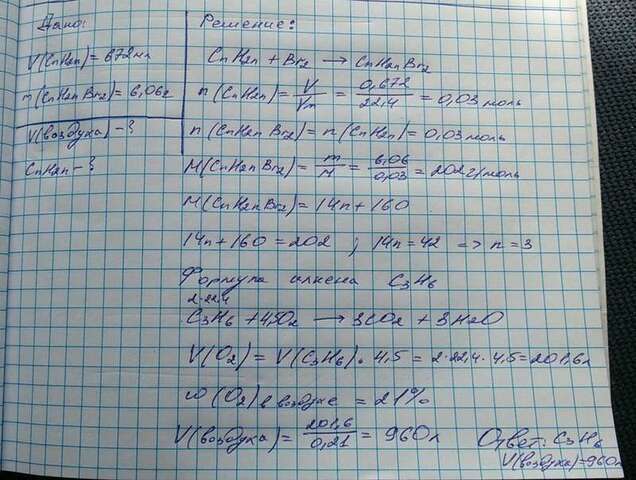 Дано:
V(CnH2n)=672мл
m(CnH2nBr2)=6,06г
V(воздуха)-?
CnH2n-?
Решение:
CnH2n + Br2 → CnH2nBr2
n(CnH2n)= V/Vm = 0,672/22,4 = 0,03 моль
n(CnH2nBr2)=n(CnH2n)=0,03моль
M(CnH2nBr2)= m/M = 6,06/0,03 = 202г/моль
M(CnH2nBr2)=14n+160
14n+160=202 ; 14n=42 => n=3
Формула алкена C3H6
2·22,4
C3H6 +4,5O2 → 3CO2 + 3H2O
V(O2)=V(C3H6)·4,5=2·22,4·4,5=201,6л
ω(O2)в воздухе =21%
V(воздуха)= 201,6/0,21 = 960л
Ответ: C3H6
V(воздуха)=960л